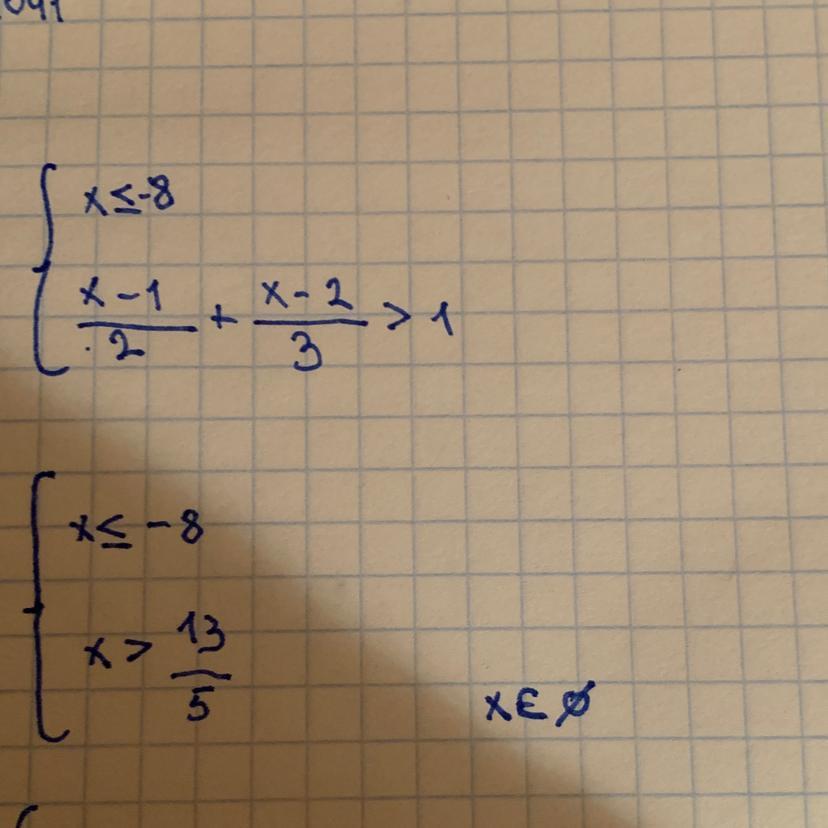 x ≤ -8
x - 1 / 2 + x - 2 / 3 > 1
x ≤ - 8
x > 13 / 5
x ∈ ∅